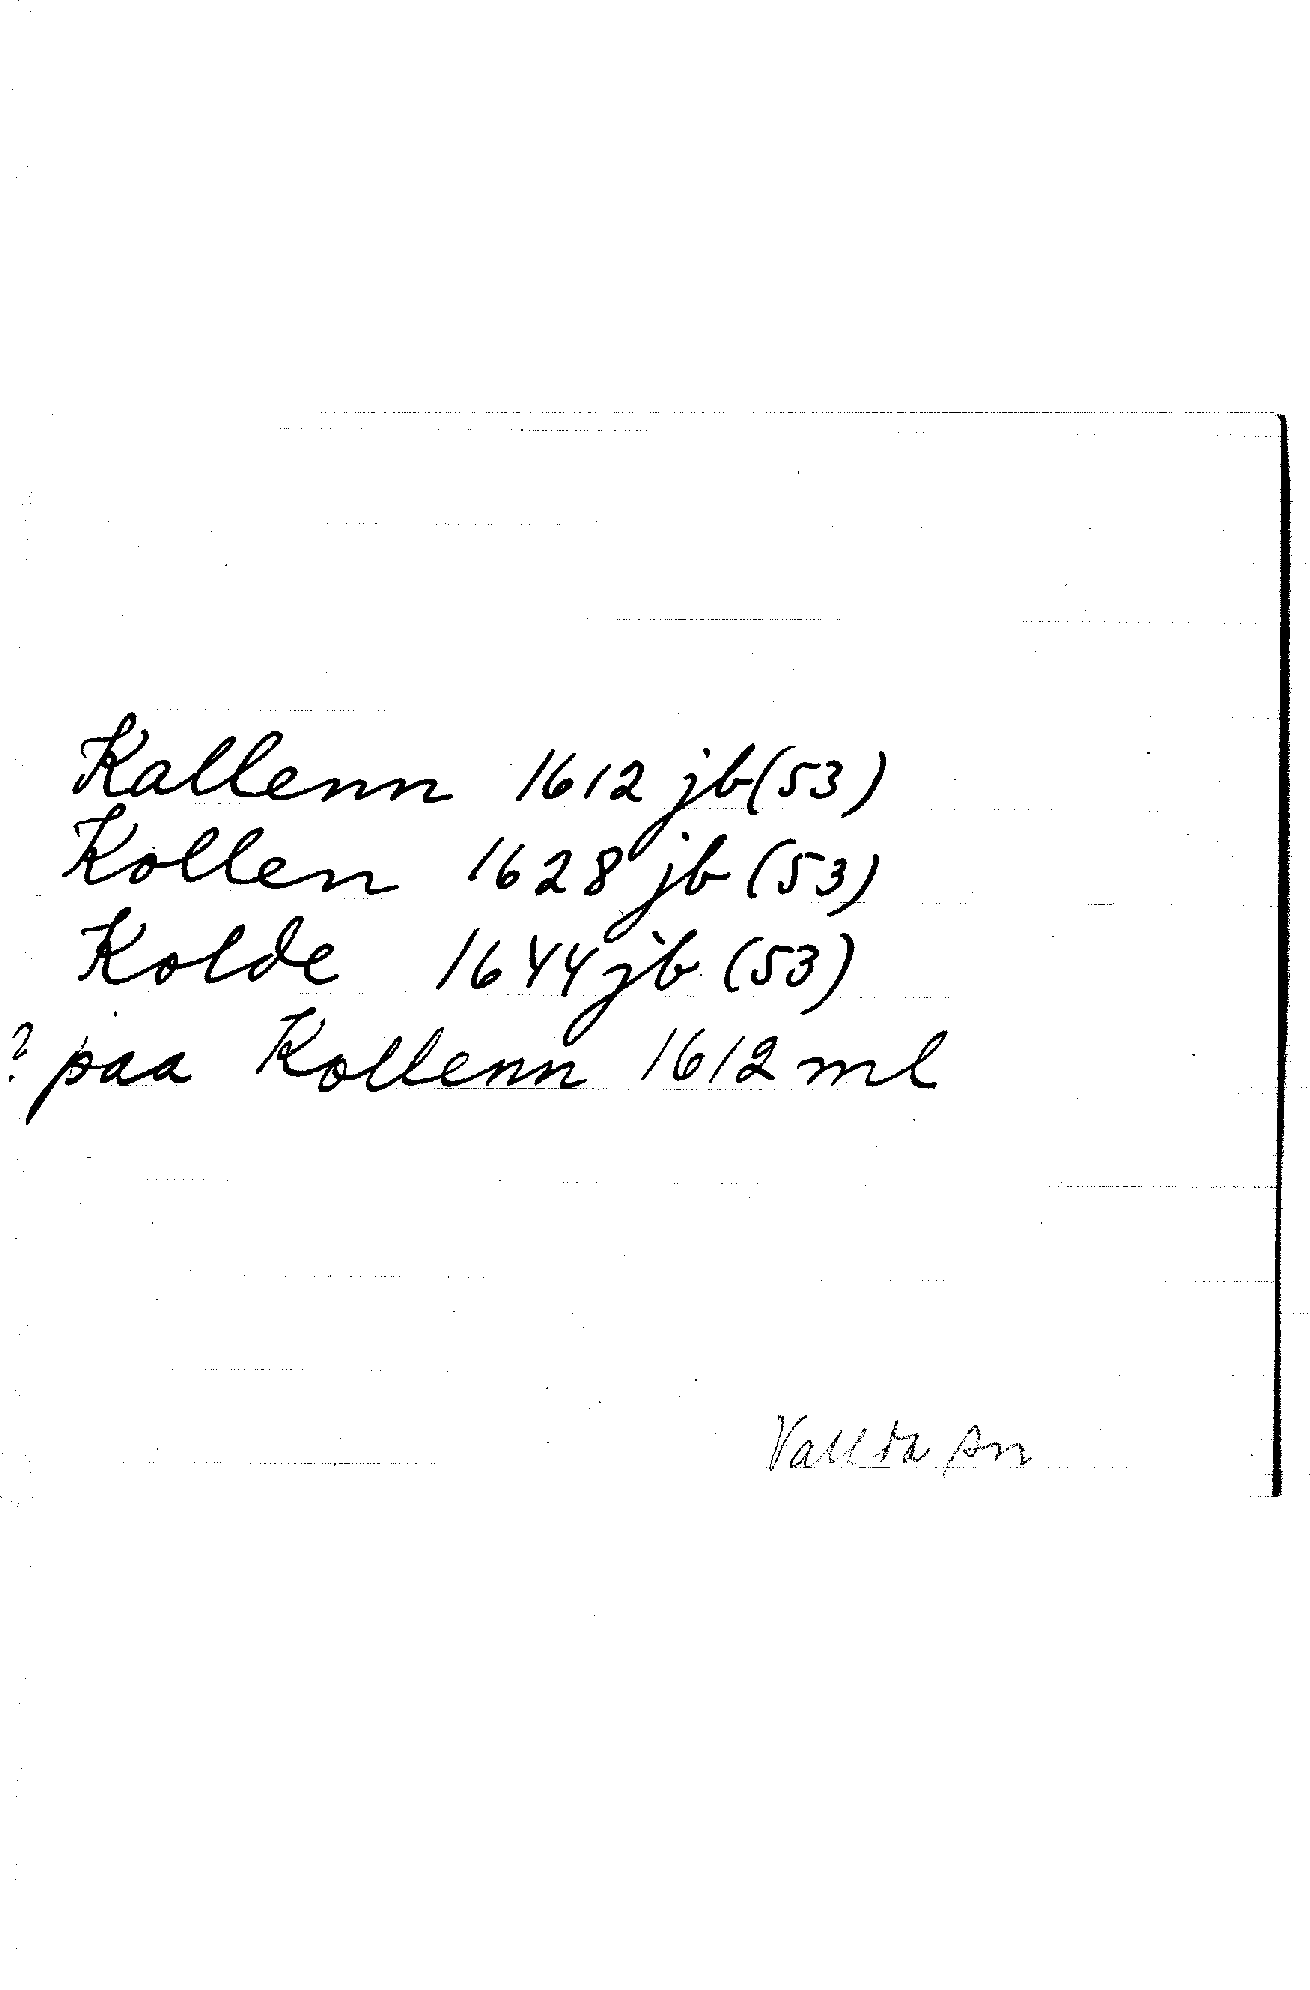 Kallenn 1612 jb (53)
Kollen 1628 jb (53)
Kolde 1644 jb (53)
? paa Kollenn 1612 ml
Vallda sn